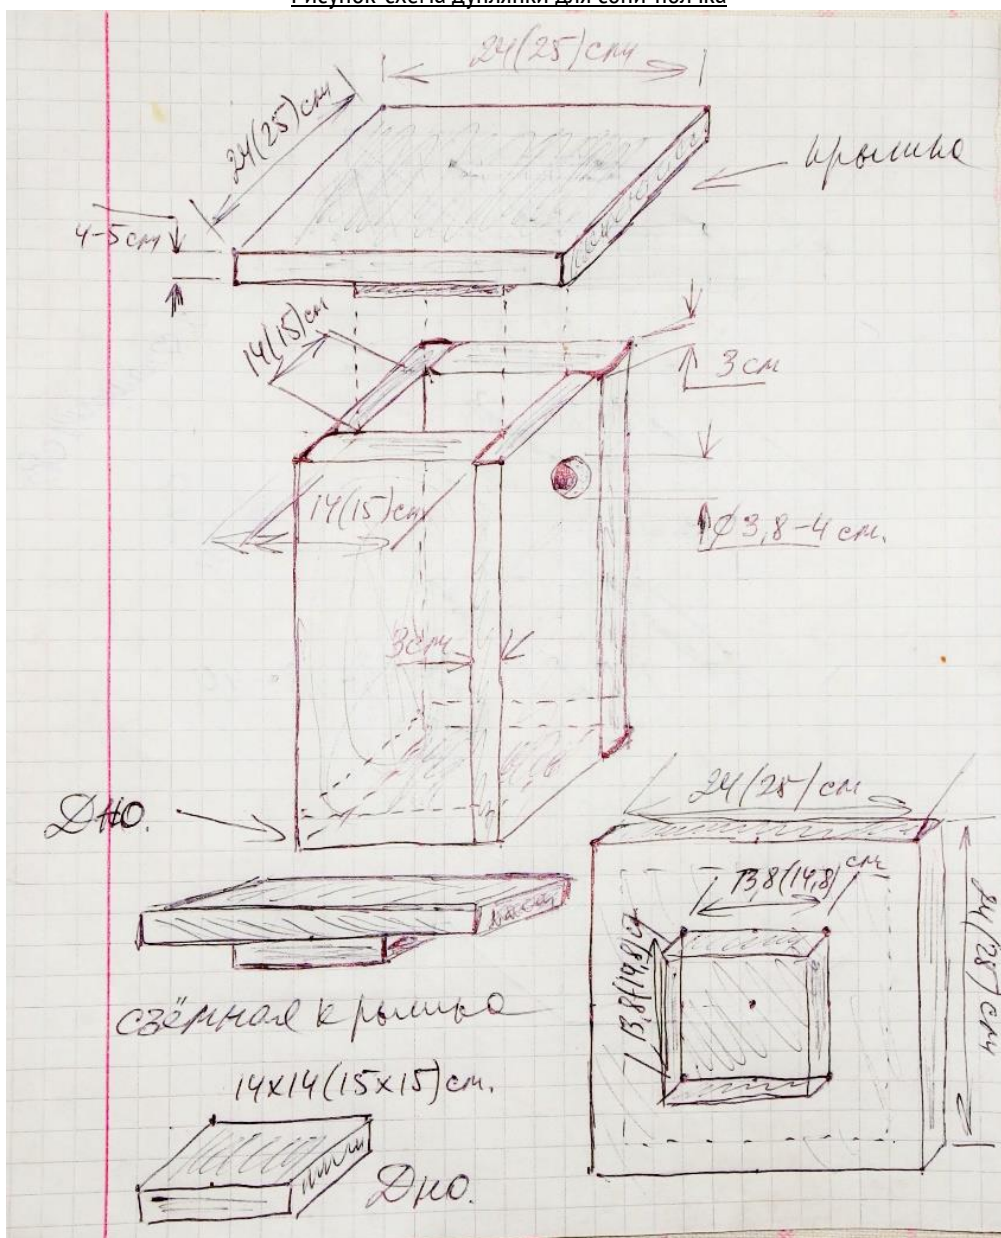 Рисунок-схема дуплянки для сони-полчка
24(25)см
24(25)см
крышка
4-5см
14(15)см
3 см
14(15)см
Ø 3,8-4 см.
3см
Дно.
24(25)см
13,8(14,8) см
13,8(14,8)см
24(25)см
съёмная крышка
14х14(15х15)см.
Дно.